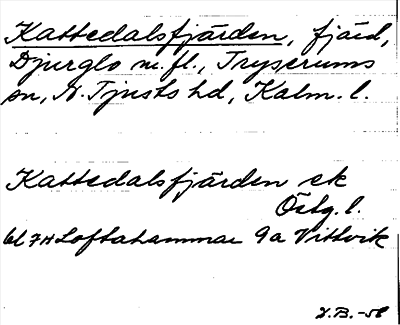 Kattedalsfjärden, fjärd,
Djurglo m.fl., Tryserums
sn, N. Tjusts hd, Kalm. l.
Kattedalsfjärden ek
Östg. l.
bl 7H Loftahammar 9a Vittvik
V.B. -58